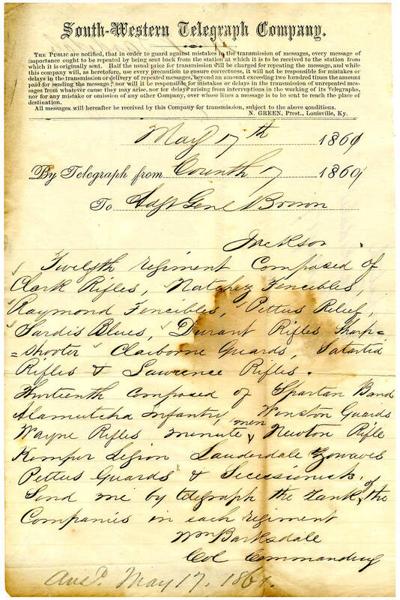 South-Western Telegraph Company.
The Public are notified, that in order to guard against mistakes in the transmission of messages, every message of
importance ought to be repeated by being sent back from the station at which it is to be received to the station from
which it is originally sent. Half the usual price for transmission will be charged for repeating the message, and while
this company will, as heretofore, use every precaution to ensure correctness, it will not be responsible for mistakes or
delays in the transmission or delivery of repeated messages, beyond an amount exceeding five hundred times the amount
paid for sending the message; nor will it be responsible for mistakes or delays in the transmission of unrepeated messages
from whatever cause they may arise, nor for delays arising from interruptions in the working of its Telegraphs,
nor for any mistake or omission of any other Company, over whose lines a message is to be sent to reach the place of
destination.
All messages will hereafter be received by this Company for transmission, subject to the above conditions.
N. GREEN, Prest., Louisville, Ky.
May 17th 1861
By Telegraph from Corinth 17 1861
To Adjt Genl Brown
Jackson
Twelfth regiment Composed of
Clark Rifles, Natchez Fencibles
Raymond Fencibles, Pettus Relief,
Sardis Blues, Durant Rifles Sharp=
=shooter Claiborne Guards, Satartia
Rifles & Lawrence Rifles.
Thirteenth composed of Spartan Band
Alamutcha Infantry, Winston Guards
Wayne Rifles minute men Newton Rifle
Kemper Legion Lauderdale Zouaves
Pettus Guards & Secessionists
Send me by telegraph the rank of the
Companies in each regiment
Wm Barksdale
Col Commanding
Ansd. May 17. 1861